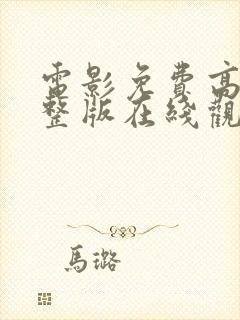 電影免費高
整版在綫觀
馬璐